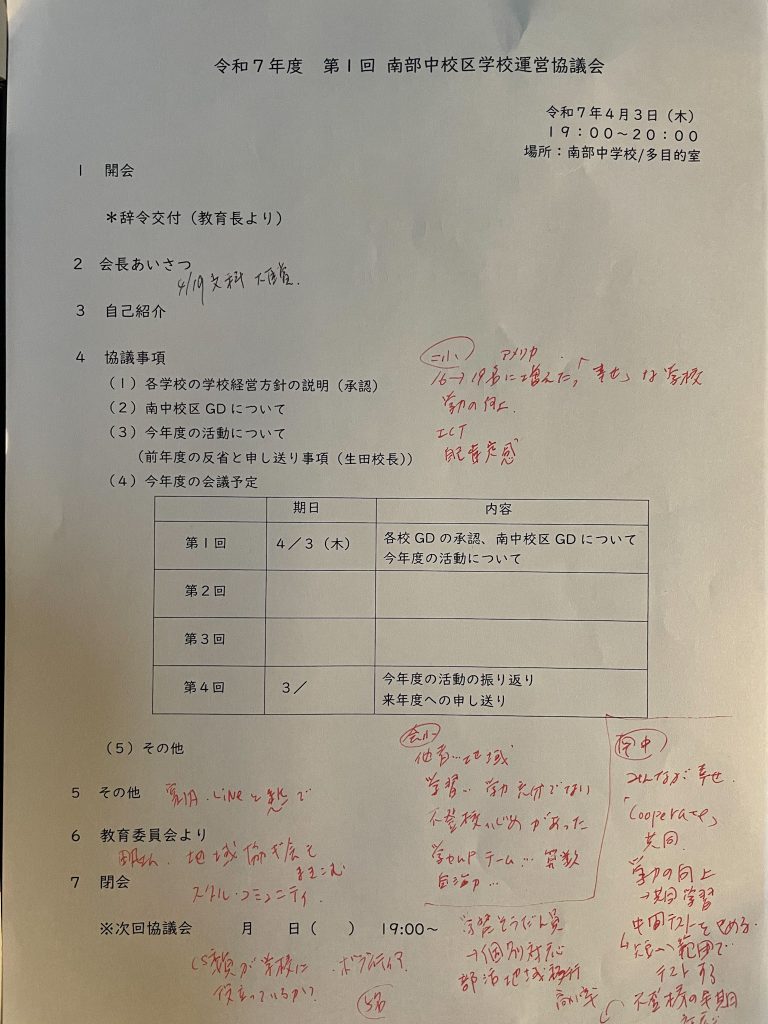 令和７年度　第１回 南部中校区学校運営協議会
令和７年４月３日（木）
１９：００～２０：００
場所：南部中学校/多目的室
１　開会
＊辞令交付（教育長より）
２　会長あいさつ
4/19 文科
３　自己紹介
４　協議事項
（１）各学校の学校経営方針の説明（承認）
（２）南中校区GDについて
（３）今年度の活動について
（前年度の反省と申し送り事項（生田校長））
（４）今年度の会議予定
二小 アメリカ
16→19名に増えた,「幸せ」な学校
学力の向上
ICT
自己肯定感
期日 内容
第１回 ４／３（木） 各校GDの承認、南中校区GDについて
今年度の活動について
第２回
第３回
第４回 ３／ 今年度の活動の振り返り
来年度への申し送り
（５）その他
５　その他
LINE
６　教育委員会より
地域協ぎ会を
まきこむ
７　閉会
スクール・コミュニティ
※次回協議会　　月　　日（　）　19:00～
が学校に
役立っているか?
ボランティア
他者…地域
学習… 学力だけでない
不登校いじめがあった
学力UPチーム… 算数
自治力…
学習そうだん員
→個別対応
部活地域移行
南中
みんなが幸せ
「Cooperate」
共同
学力の向上
→共同学習
中間テストを
短い範囲で
テストする
不登校の早期
対応